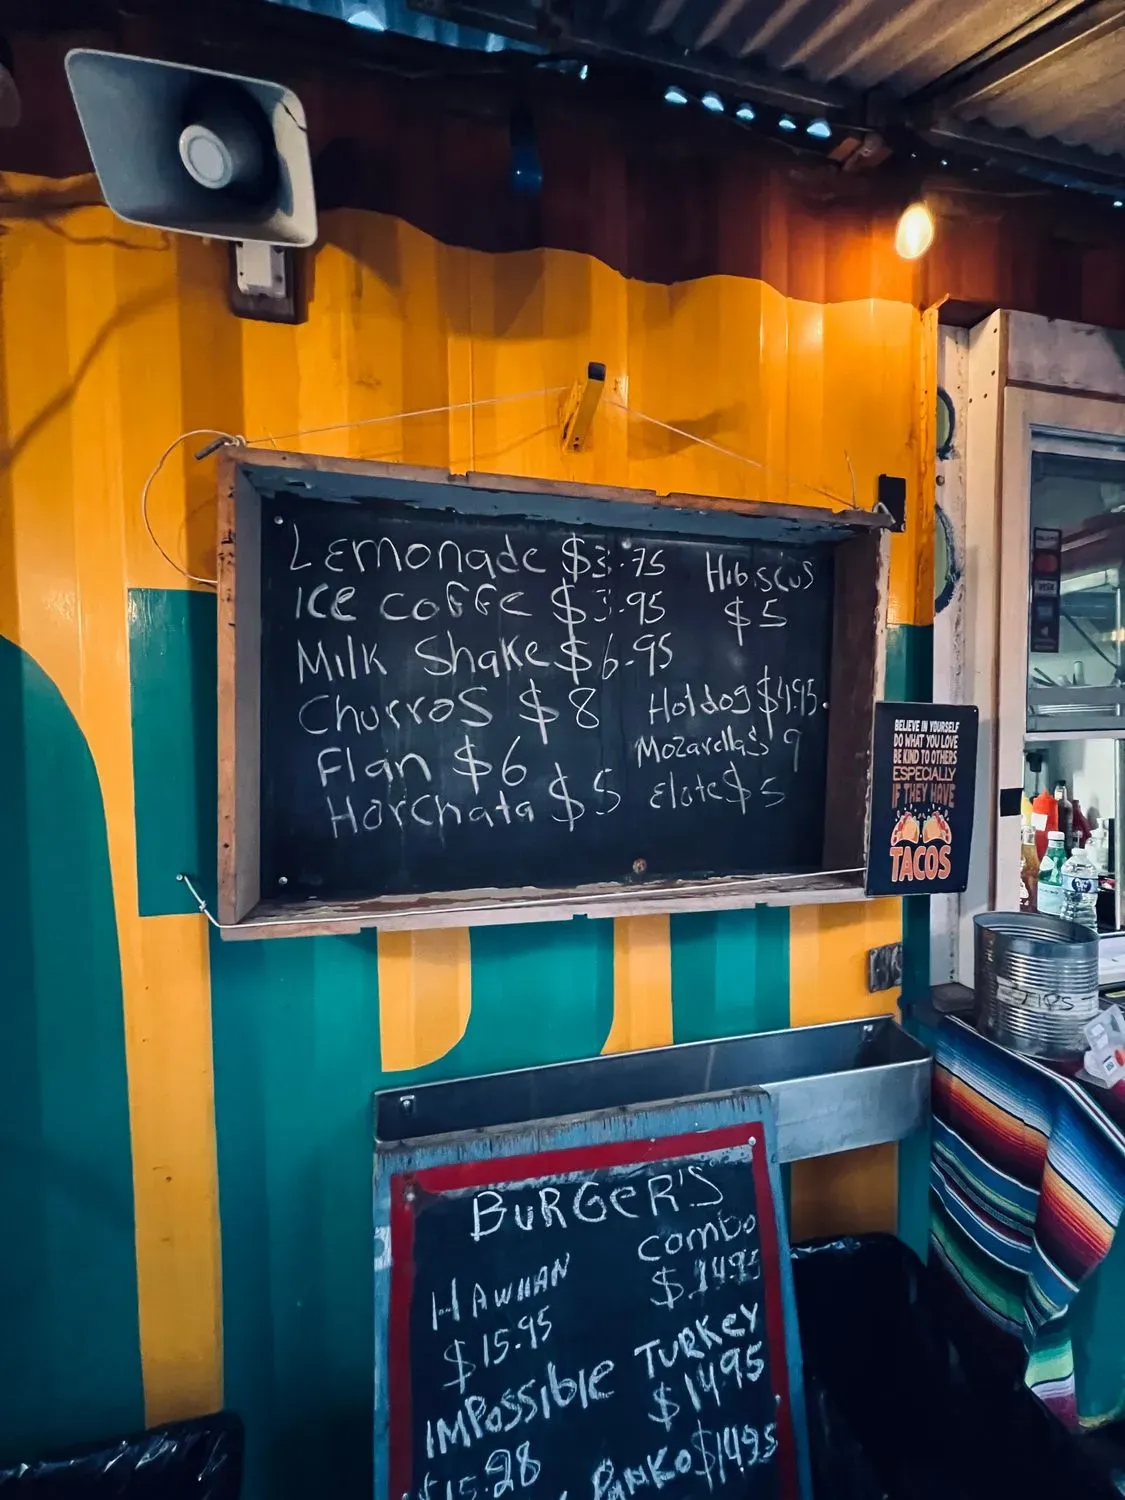 Lemonade $3.75
ICE coffe $3.95
Milk Shake $6.95
Churros $8
Flan $6
Horchata $5
Hibiscus
$5
Hotdog $4.95
Mozarella$ 9
Elote $5
BELIEVE IN YOURSELF
DO WHAT YOU LOVE
BE KIND TO OTHERS
ESPECIALLY
IF THEY HAVE
TACOS
TIPS
BURGER'S
HAWIIAN
$15.95
IMPOSSIBLE
$15.28
combo
$14.95
TURKEY
$14.95
PANKO $14.95